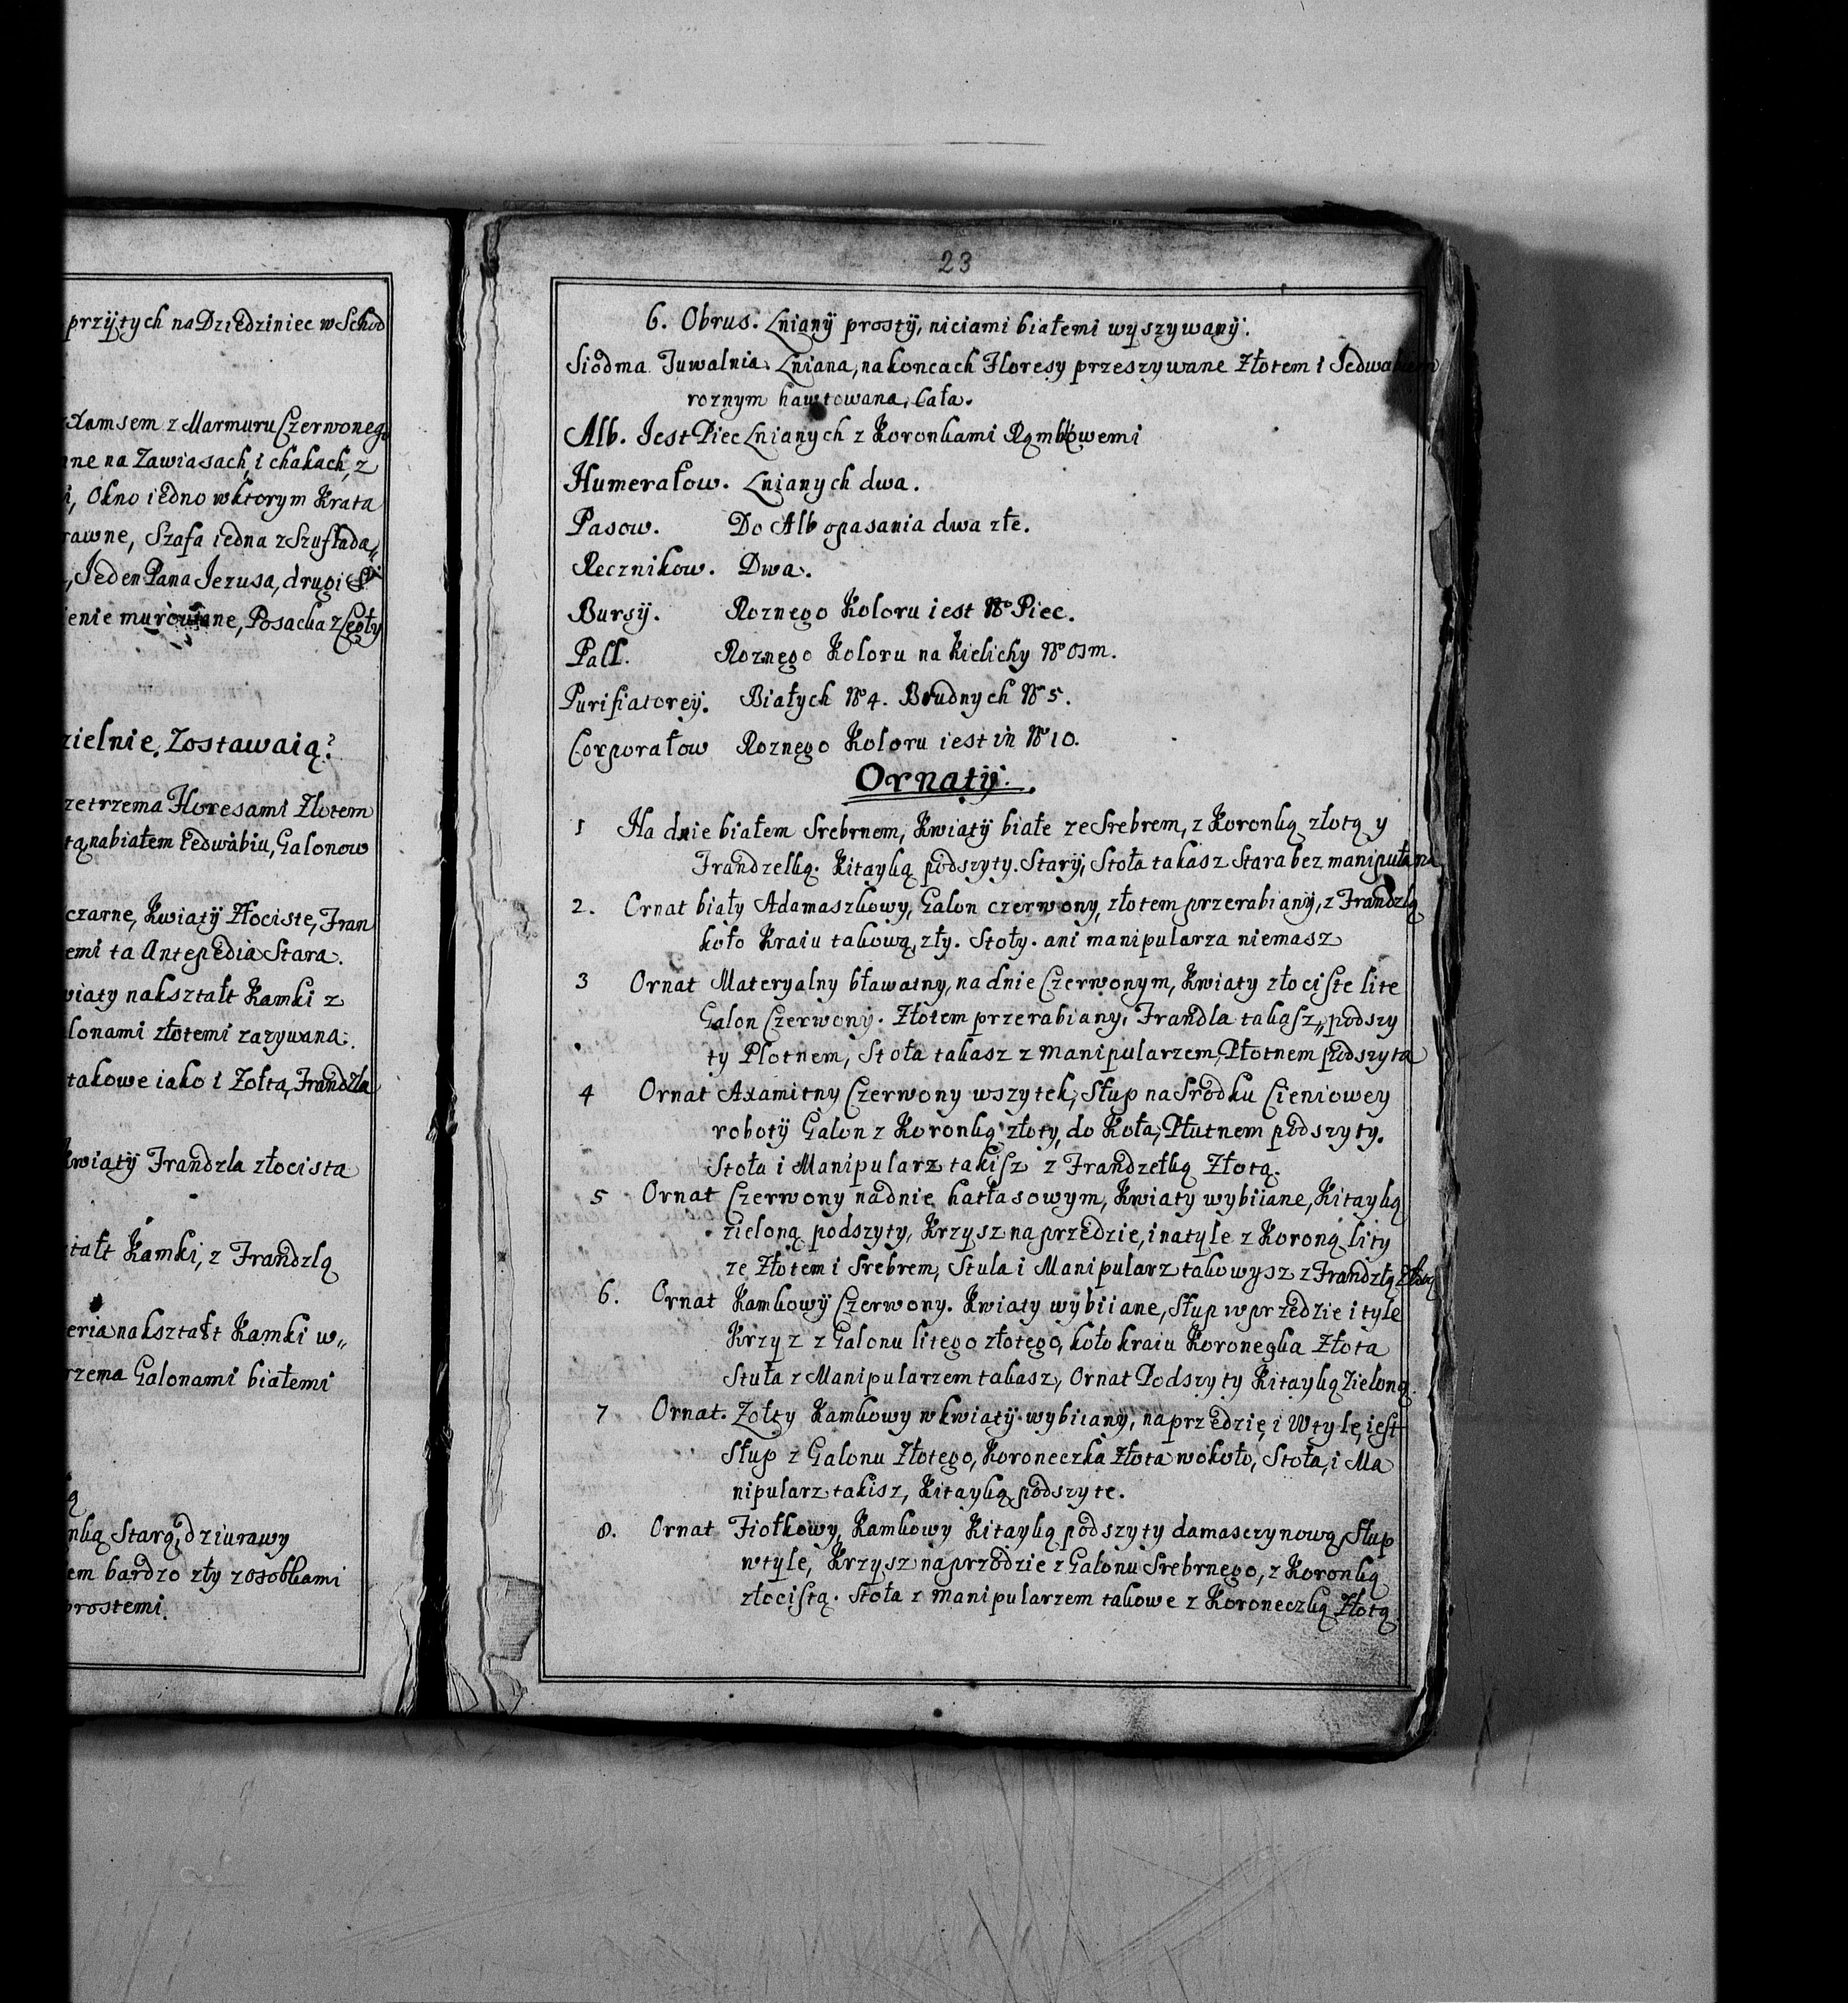 przÿtych na Dziedziniec w Schod
z Marmuru Czerwoneg
na Zawiasach, i chakach, z
Okno iedno w ktorym Krata
Szafa iedna z Szuflada„
Jeden Pana Jezusa, drugi
murowane, Posacka z Cegły
Zostawaią?
Floresami Złotem
na białem Iedwabiu, Galonow
czarne, Kwiatÿ Złociste, Fran
ta Antepedia Stara.
nakształt Kamki z
złotemi zazywana.
takowe iako i Zołta, Frandzla
Kwiatÿ Frandzla złocista
Kamki, z Frandzlą
nakształt Kamki w„
Galonami białemi
Starą, dziurawy
bardzo zły z osobkami
prostemi.
23
6. Obrus. Lnianÿ prostÿ, niciami białemi wyszywanÿ.
Siodma Tuwalnia. Lniana, na koncach Floresy przeszywane Złotem i Jedwabiem
roznym hawtowana, Cała.
Alb. Jest Piec Lnianych z Koronkami Rąmbkowemi
Humerałow. Lnianych dwa.
Pasow. Do Alb opasania dwa złe.
Recznikow. Dwa.
Bursÿ. Roznego Koloru iest No Piec.
Pall. Roznego Koloru na Kielichy No osm.
Purifiatoreÿ. Białych No 4. Brudnych No 5.
Corporałow Roznego Koloru iest in No 10.
Ornatÿ.
1 Na dnie białem Srebrnem, Kwiatÿ białe ze Srebrem, z Koronką złotą y
Frandzelką. Kitayką podszyty. Starÿ, Stoła takasz Stara bez manipułarza
2. Ornat biały Adamaszkowy, Galon czerwony, złotem przerabianÿ, z Frandzlą
koło Kraiu takową, zły. Stoły. ani manipularza niemasz
3 Ornat Materyalny bławatny, na dnie Czerwonym, Kwiaty złociste lite
Galon Czerwony. Złotem przerabiany, Frandla takasz„ podszy
ty Plotnem, Stoła takasz z manipularzem, Płotnem podszyta
4 Ornat Axamitny Czerwony wszytek, Słup na Srodku Cieniowey
robotÿ Galon z Koronką złoty, do Koła, Płutnem podszyty.
Stoła i Manipularz takisz z Frandzełką Złotą.
5 Ornat Czerwony nadnie hatłasowym, Kwiaty wybiiane, Kitayką
zieloną podszyty, Krzysz na przedzie, i natyle z Koroną lity
ze Złotem i Srebrem, Stula i Manipularz takowysz z Frandzłą Złotą
6. Ornat Kamkowÿ Czerwony. Kwiaty wybiiane, Słup w przedzie i tyle
Krzyz z Galonu litego złotego, koło kraiu Koronegka Złota
Stuła z Manipularzem takasz, Ornat Podszyty Kitayką Zieloną.
7 Ornat. Zołty Kamkowy w kwiatÿ wybiiany, na przedzie, i W tyle, iest
Słup z Galonu Złotego, Koroneczka Złota wokoło, Stoła, i Ma
nipularz takisz, Kitayką podszyte.
8. Ornat Fiołkowy, Kamkowy Kitayką podszyty damasczynową, Słup
w tyle, Krzysz na przodzie z Galonu Srebrnego, z Koronką
złocistą. Stoła z manipularzem takowe z Koroneczką Złotą